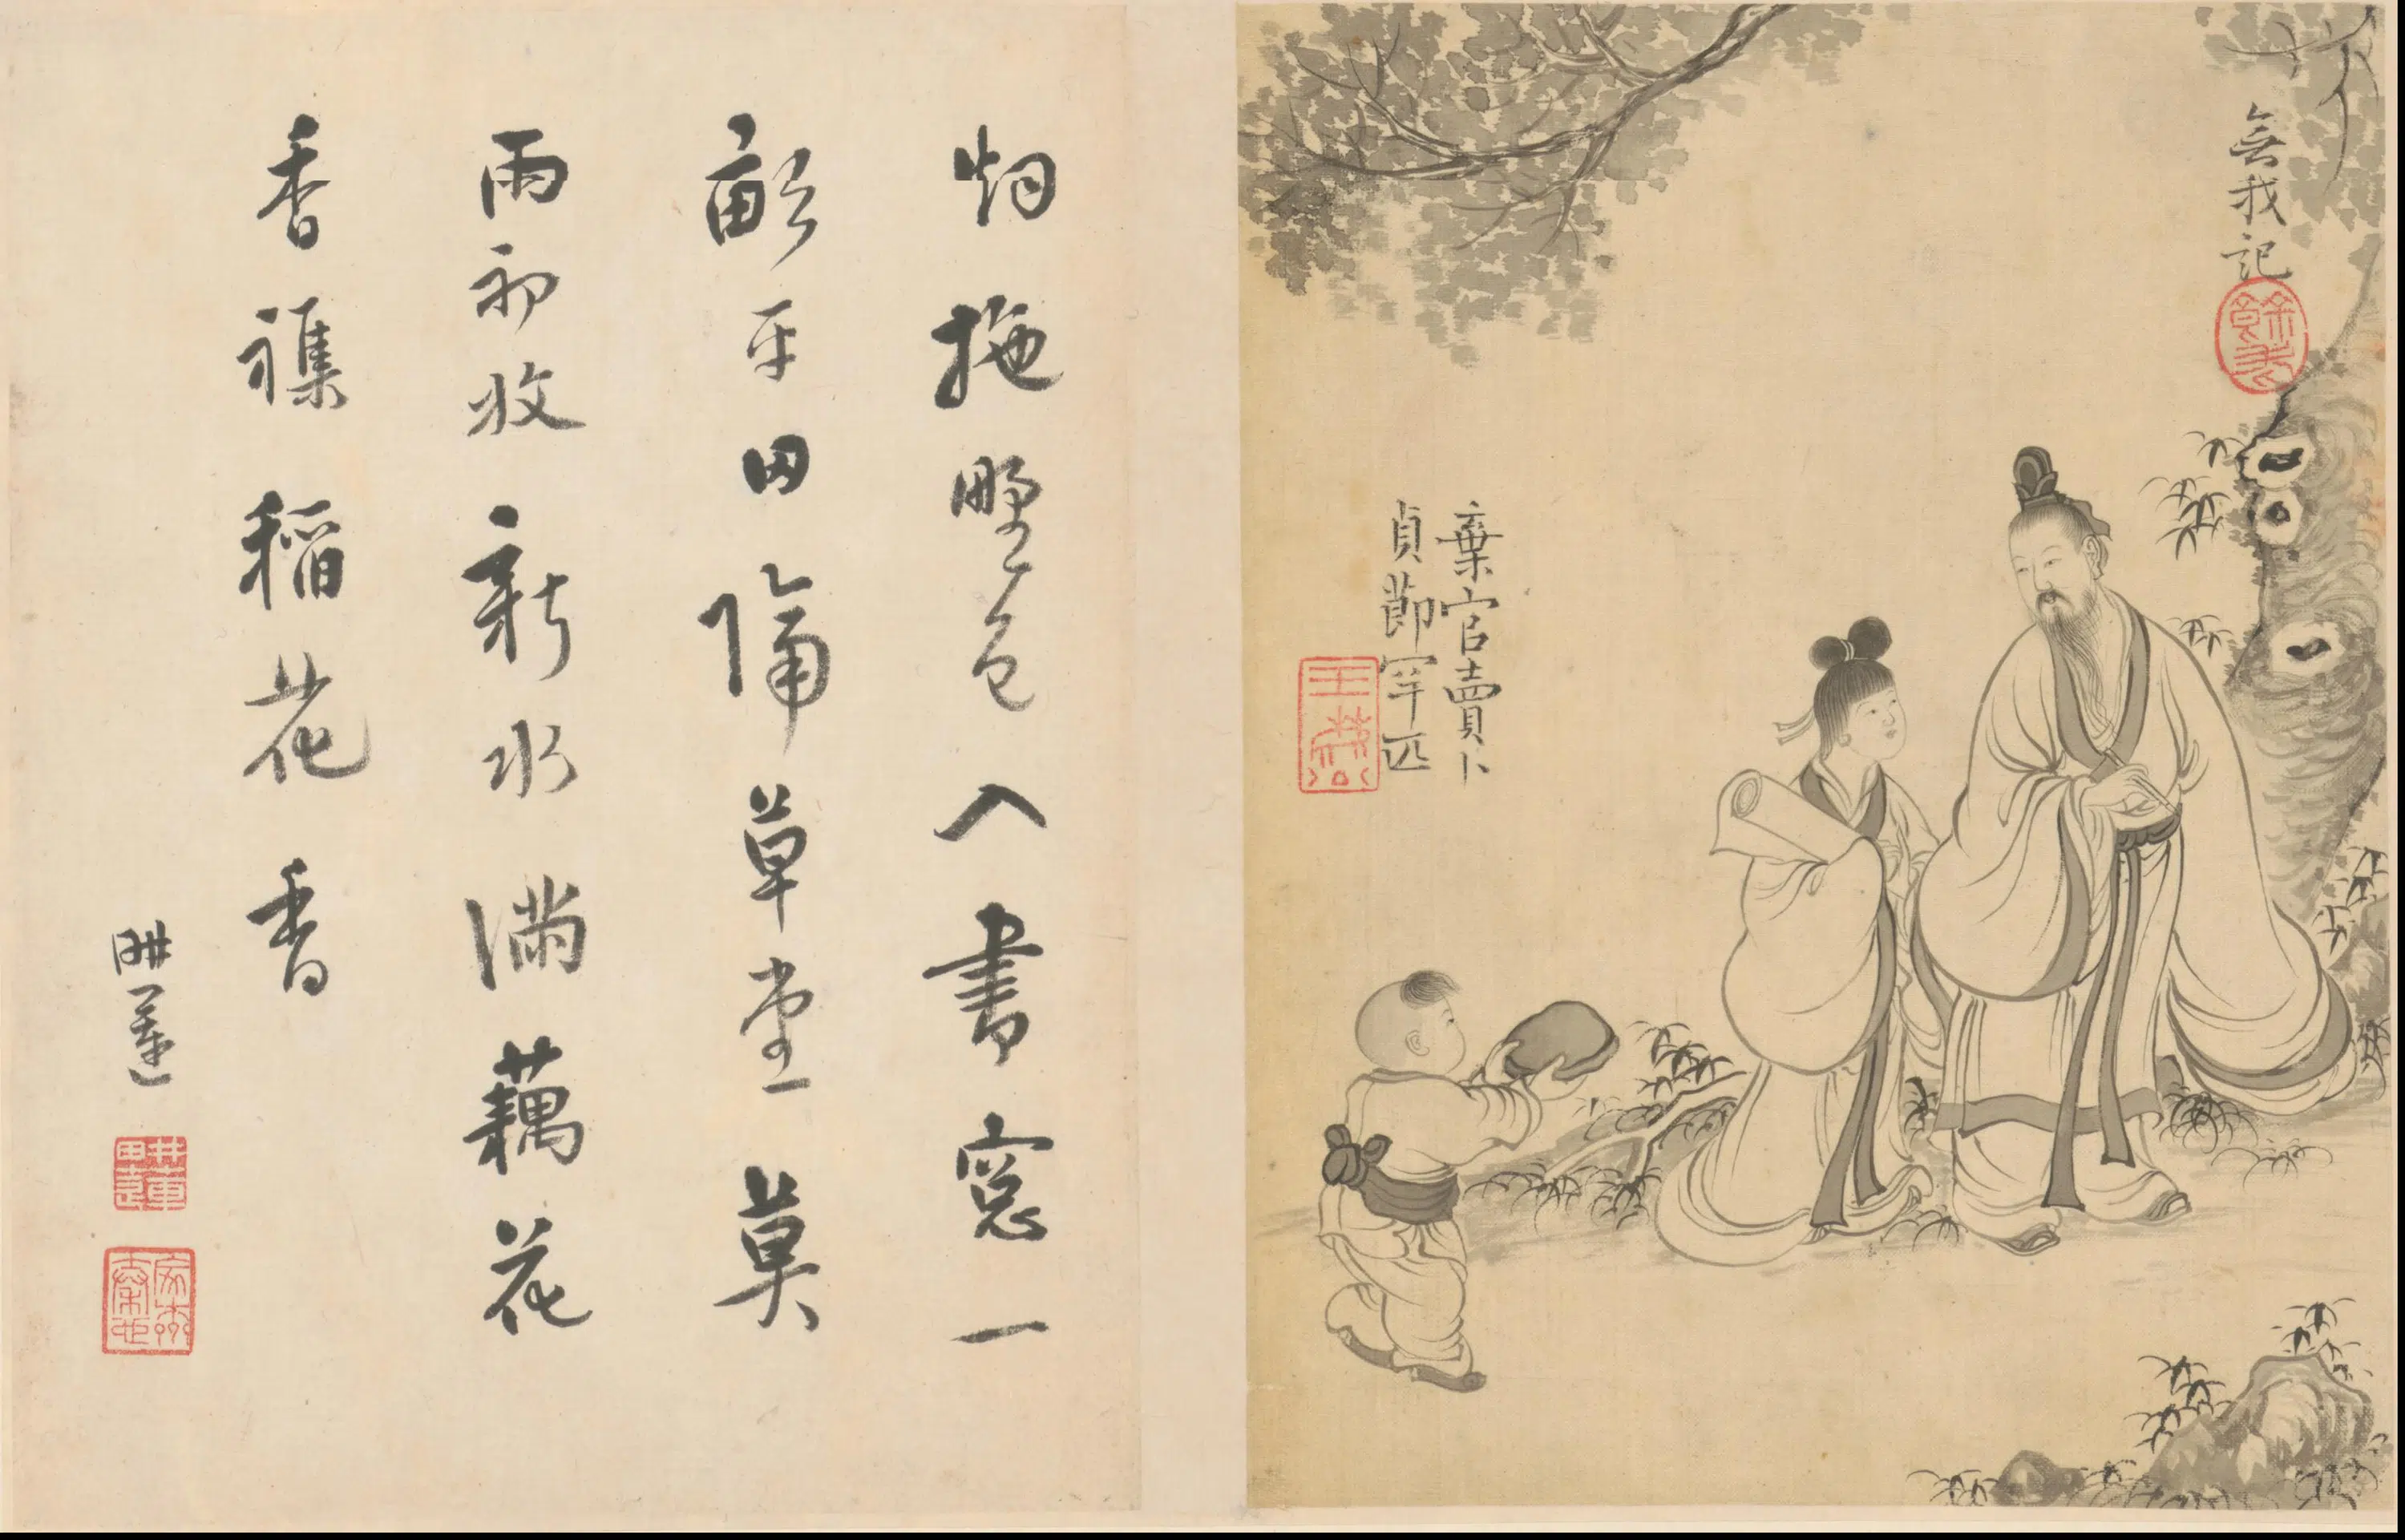 無我記
棄官賣卜
貞節罕匹
烟拖野色入書窻一
畝平田隔草堂莫
雨初收新水滿藕花
香襍稻花香
畊蓮